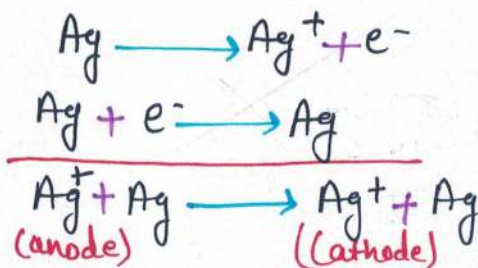 Ag → Ag⁺ + e⁻
Ag + e⁻ → Ag
Ag⁺ + Ag → Ag⁺ + Ag
(anode) ((athode)